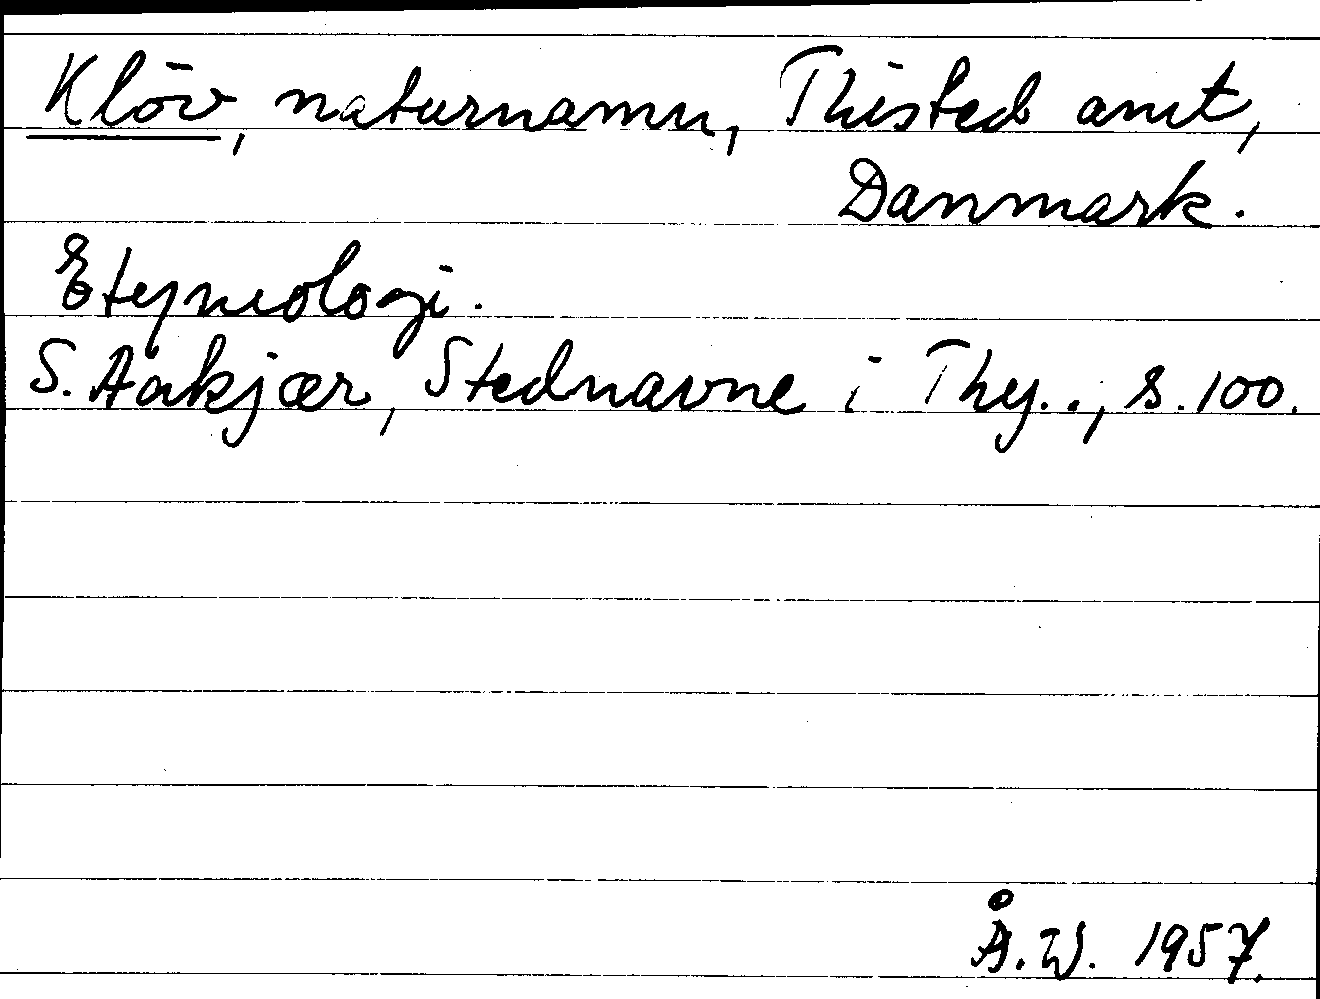 Klöv, naturnamn, Thisted amt,
Danmark.
Etymologi.
S. Aakjær, Stednavne i Thy.., s. 100.
Å.W. 1957.